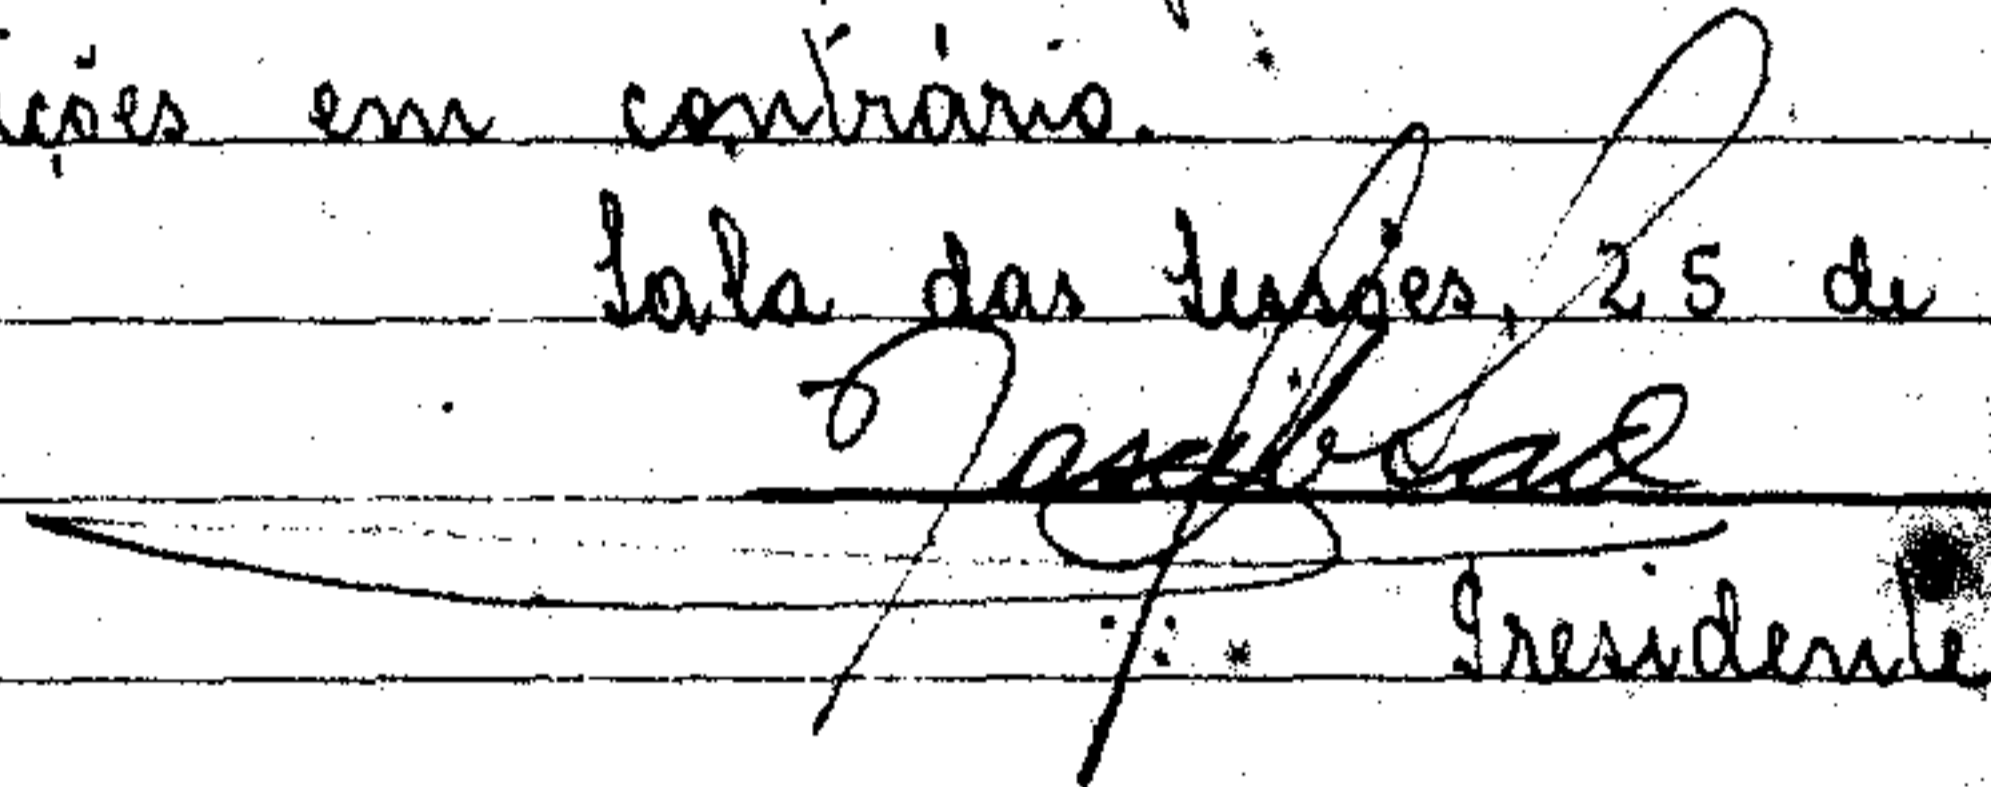 ições em contrário.
Sala das Sessões, 25 de
Presidente